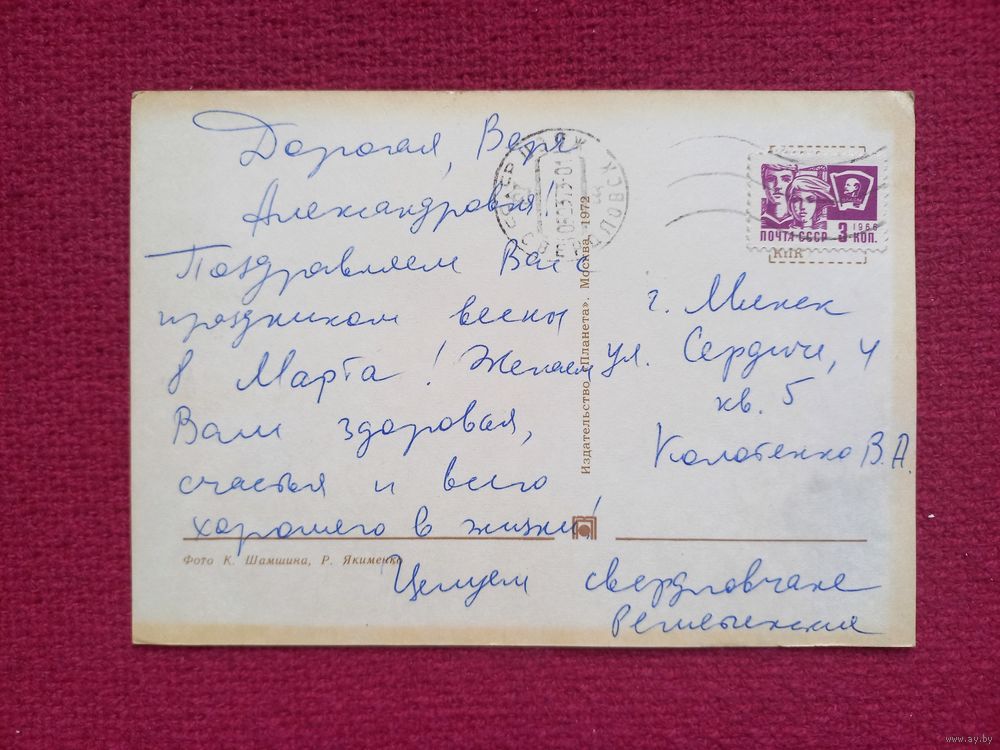 Дорогая, Вера
Александровна!
Поздравляем Вас с
праздником весны
8 Марта! Желаем
Вам здоровья,
счастья и всего
хорошего в жизни!
Целуем свердловчане
г. Минск
ул. Сердича, 4
кв. 5
Колотенко В.А.
ПОЧТА СССР 3 КОП.
1966
КПК
Издательство «Планета». Москва. 1972
Фото К. Шамшина, Р. Якименко
www.ay.by